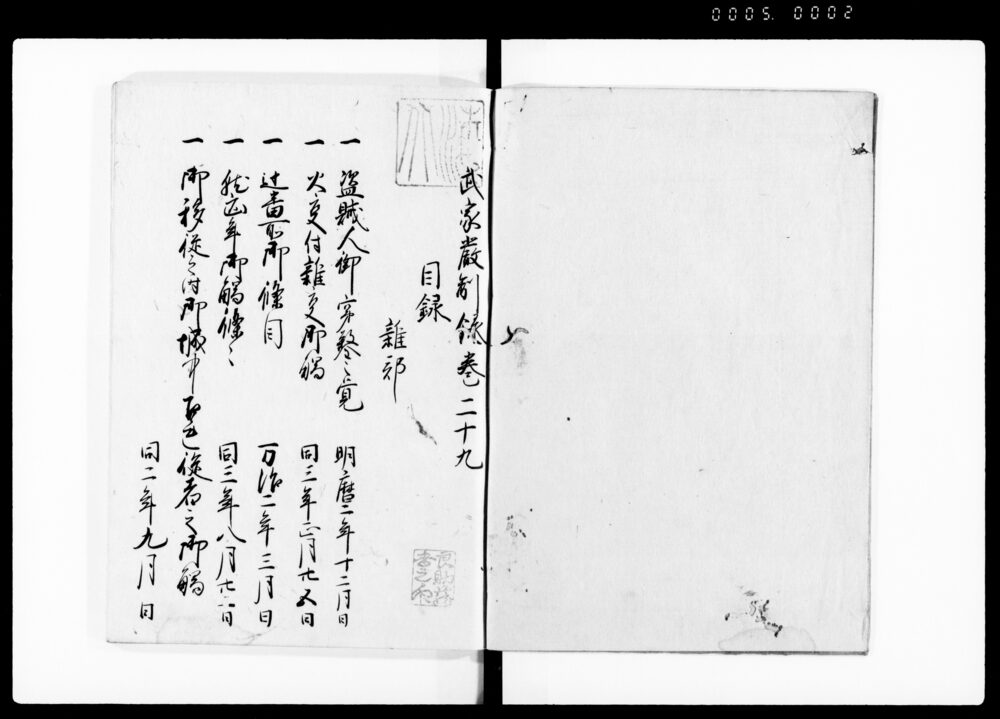 0005. 0002
武家嚴制錄卷二十九
目録
雜部
一 盗賊人御穿鑿之覚 明暦二年十二月日
一 火之付雜之御觸 同三年正月廿五日
一 辻番所御條目 万治二年三月日
一 年御觸條々 同三年八月日
一 御移徙之時御城中従者之御觸
同二年九月日